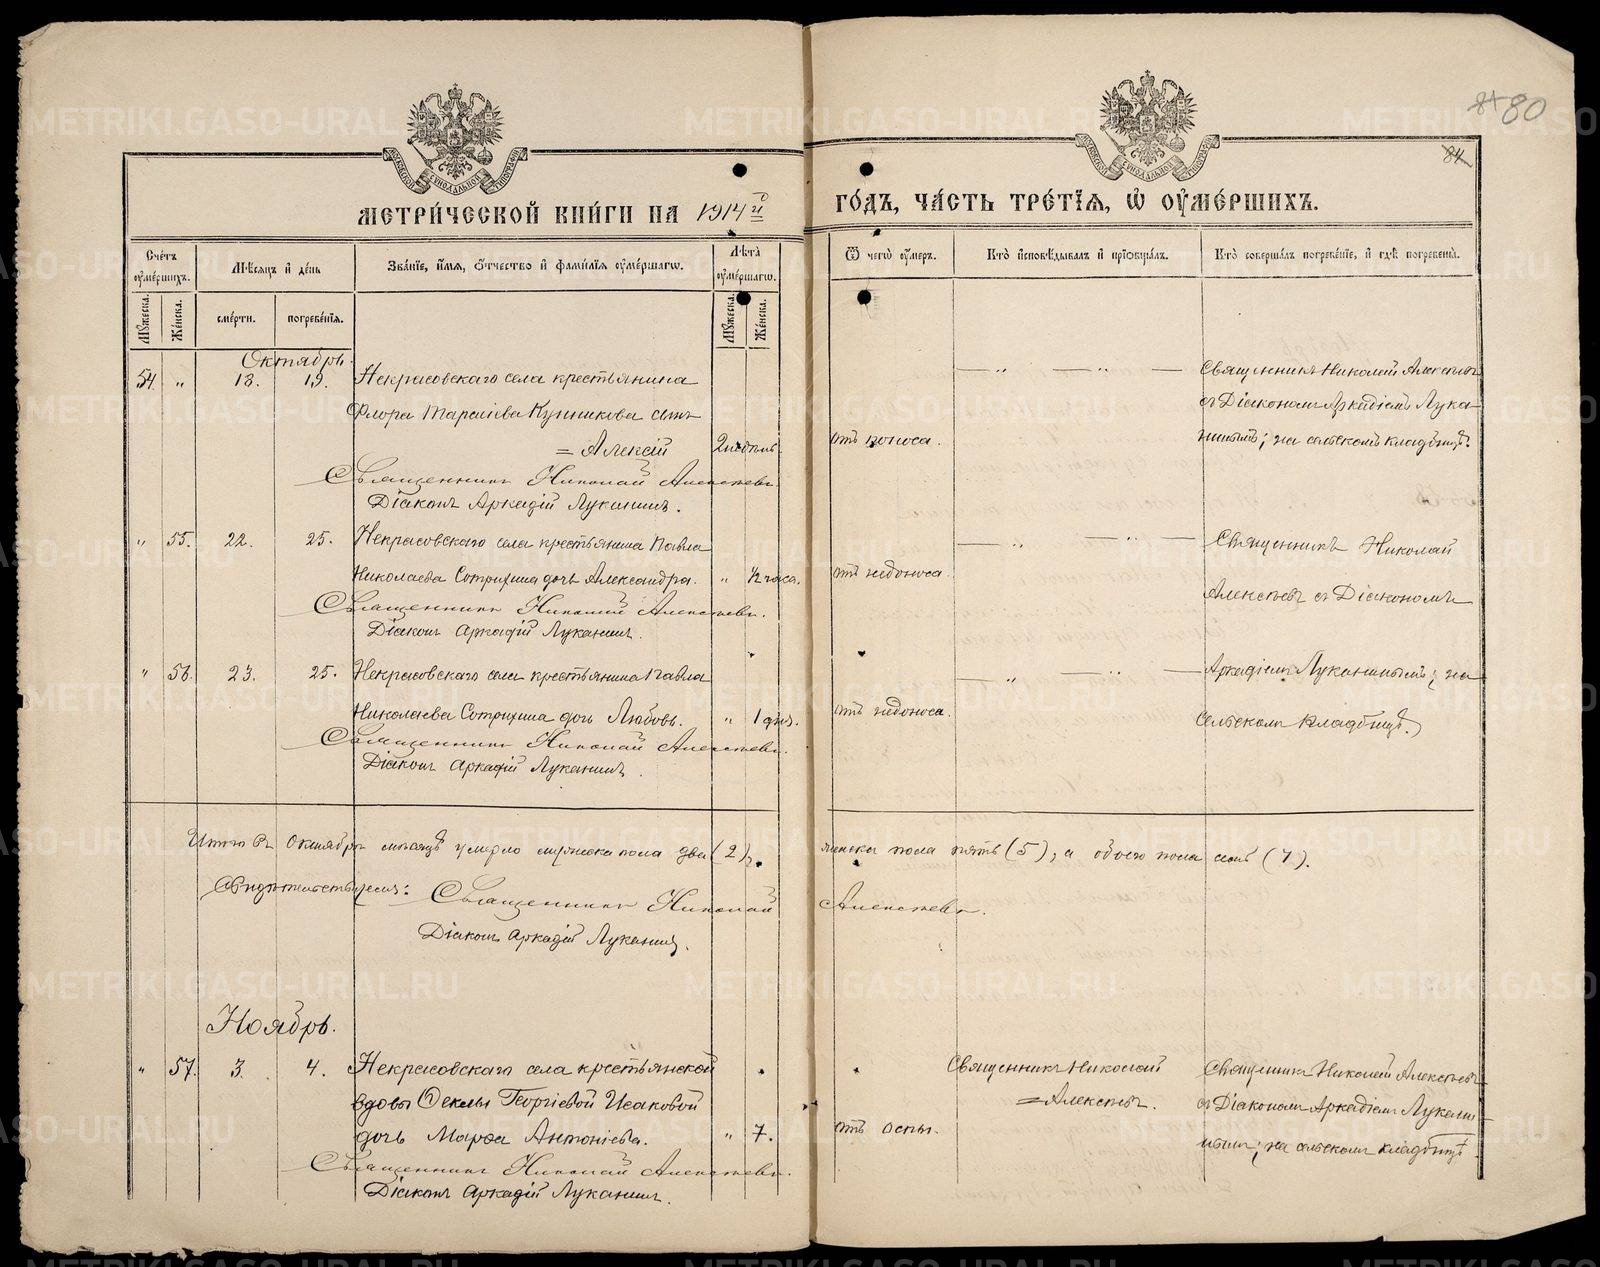 84 80
84
МЕТРИЧЕСКОЙ КНИГИ НА 1914й ГОДЪ, ЧАСТЬ ТРЕТІЯ, Ѿ ОУМЕРШИХЪ.
Счетъ оумершихъ.
Мѣсяцъ и день
Званіе, имя, отчество и фамилія оумершагω.
Лѣта оумершагω.
Ѿ чегω оумеръ.
Кто исповѣдывалъ и пріобщалъ.
Кто совершалъ погребеніе, и гдѣ погребены.
Мужеска.
Женска.
смерти.
погребенія.
Мужеска.
Женска.
Октябрь.
54. " 18. 19. Некрасовскаго села крестьянина
Флора Тарасіева Кунникова сынъ
= Алексій 2 недѣль.
отъ поноса.
Священникъ Николай Алексѣевъ
съ Діакономъ Аркадіемъ Лука-
нинымъ; на сельскомъ кладбищѣ.
Священникъ Николай Алексѣевъ.
Діаконъ Аркадій Луканинъ.
" 55. 22. 25. Некрасовскаго села крестьянина Павла
Николаева Сотрихина дочь Александра. " ½ часа.
отъ недоноса.
Священникъ Николай
Алексѣевъ съ Діакономъ
Священникъ Николай Алексѣевъ.
Діаконъ Аркадій Луканинъ.
" 56. 23. 25. Некрасовскаго села крестьянина Павла
Николаева Сотрихина дочь Любовь. " 1 дня.
отъ недоноса.
Аркадіемъ Луканинымъ; на
сельскомъ кладбищѣ.
Священникъ Николай Алексѣевъ.
Діаконъ Аркадій Луканинъ.
Итого въ Октябрѣ мѣсяцѣ умерло мужска пола два (2), женска пола пять (5), а обоего пола семь (7).
Свидѣтельствуемъ: Священникъ Николай Алексѣевъ.
Діаконъ Аркадій Луканинъ.
Ноябрь.
" 57. 3. 4. Некрасовскаго села крестьянской
вдовы Ѳеклы Георгіевой Исаковой
дочь Марѳа Антоніева. " 7.
отъ оспы.
Священникъ Николай
= Алексѣевъ.
Священникъ Николай Алексѣевъ
съ Діакономъ Аркадіемъ Лукани-
нымъ; на сельскомъ кладбищѣ
Священникъ Николай Алексѣевъ.
Діаконъ Аркадій Луканинъ.
METRIKI.GASO-URAL.RU